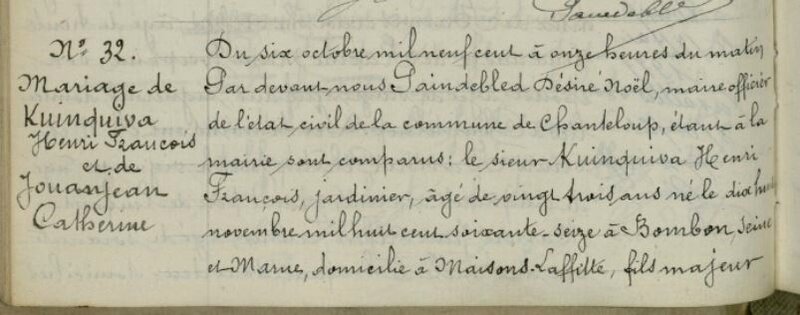 Nº 32.
Mariage de
Kuinquiva
Henri François
et de
Jouanjean
Catherine
Du six octobre mil neuf cent à onze heures du matin
Par devant nous Paindebled Désiré Noël, maire officier
de l'état civil de la commune de Chanteloup, étant à la
mairie sont comparus : le sieur Kuinquiva Henri
François, jardinier, âgé de vingt trois ans né le dix huit
novembre mil huit cent soixante-seize à Bombon, Seine
et Marne, domicilié à Maisons-Laffitte, fils majeur